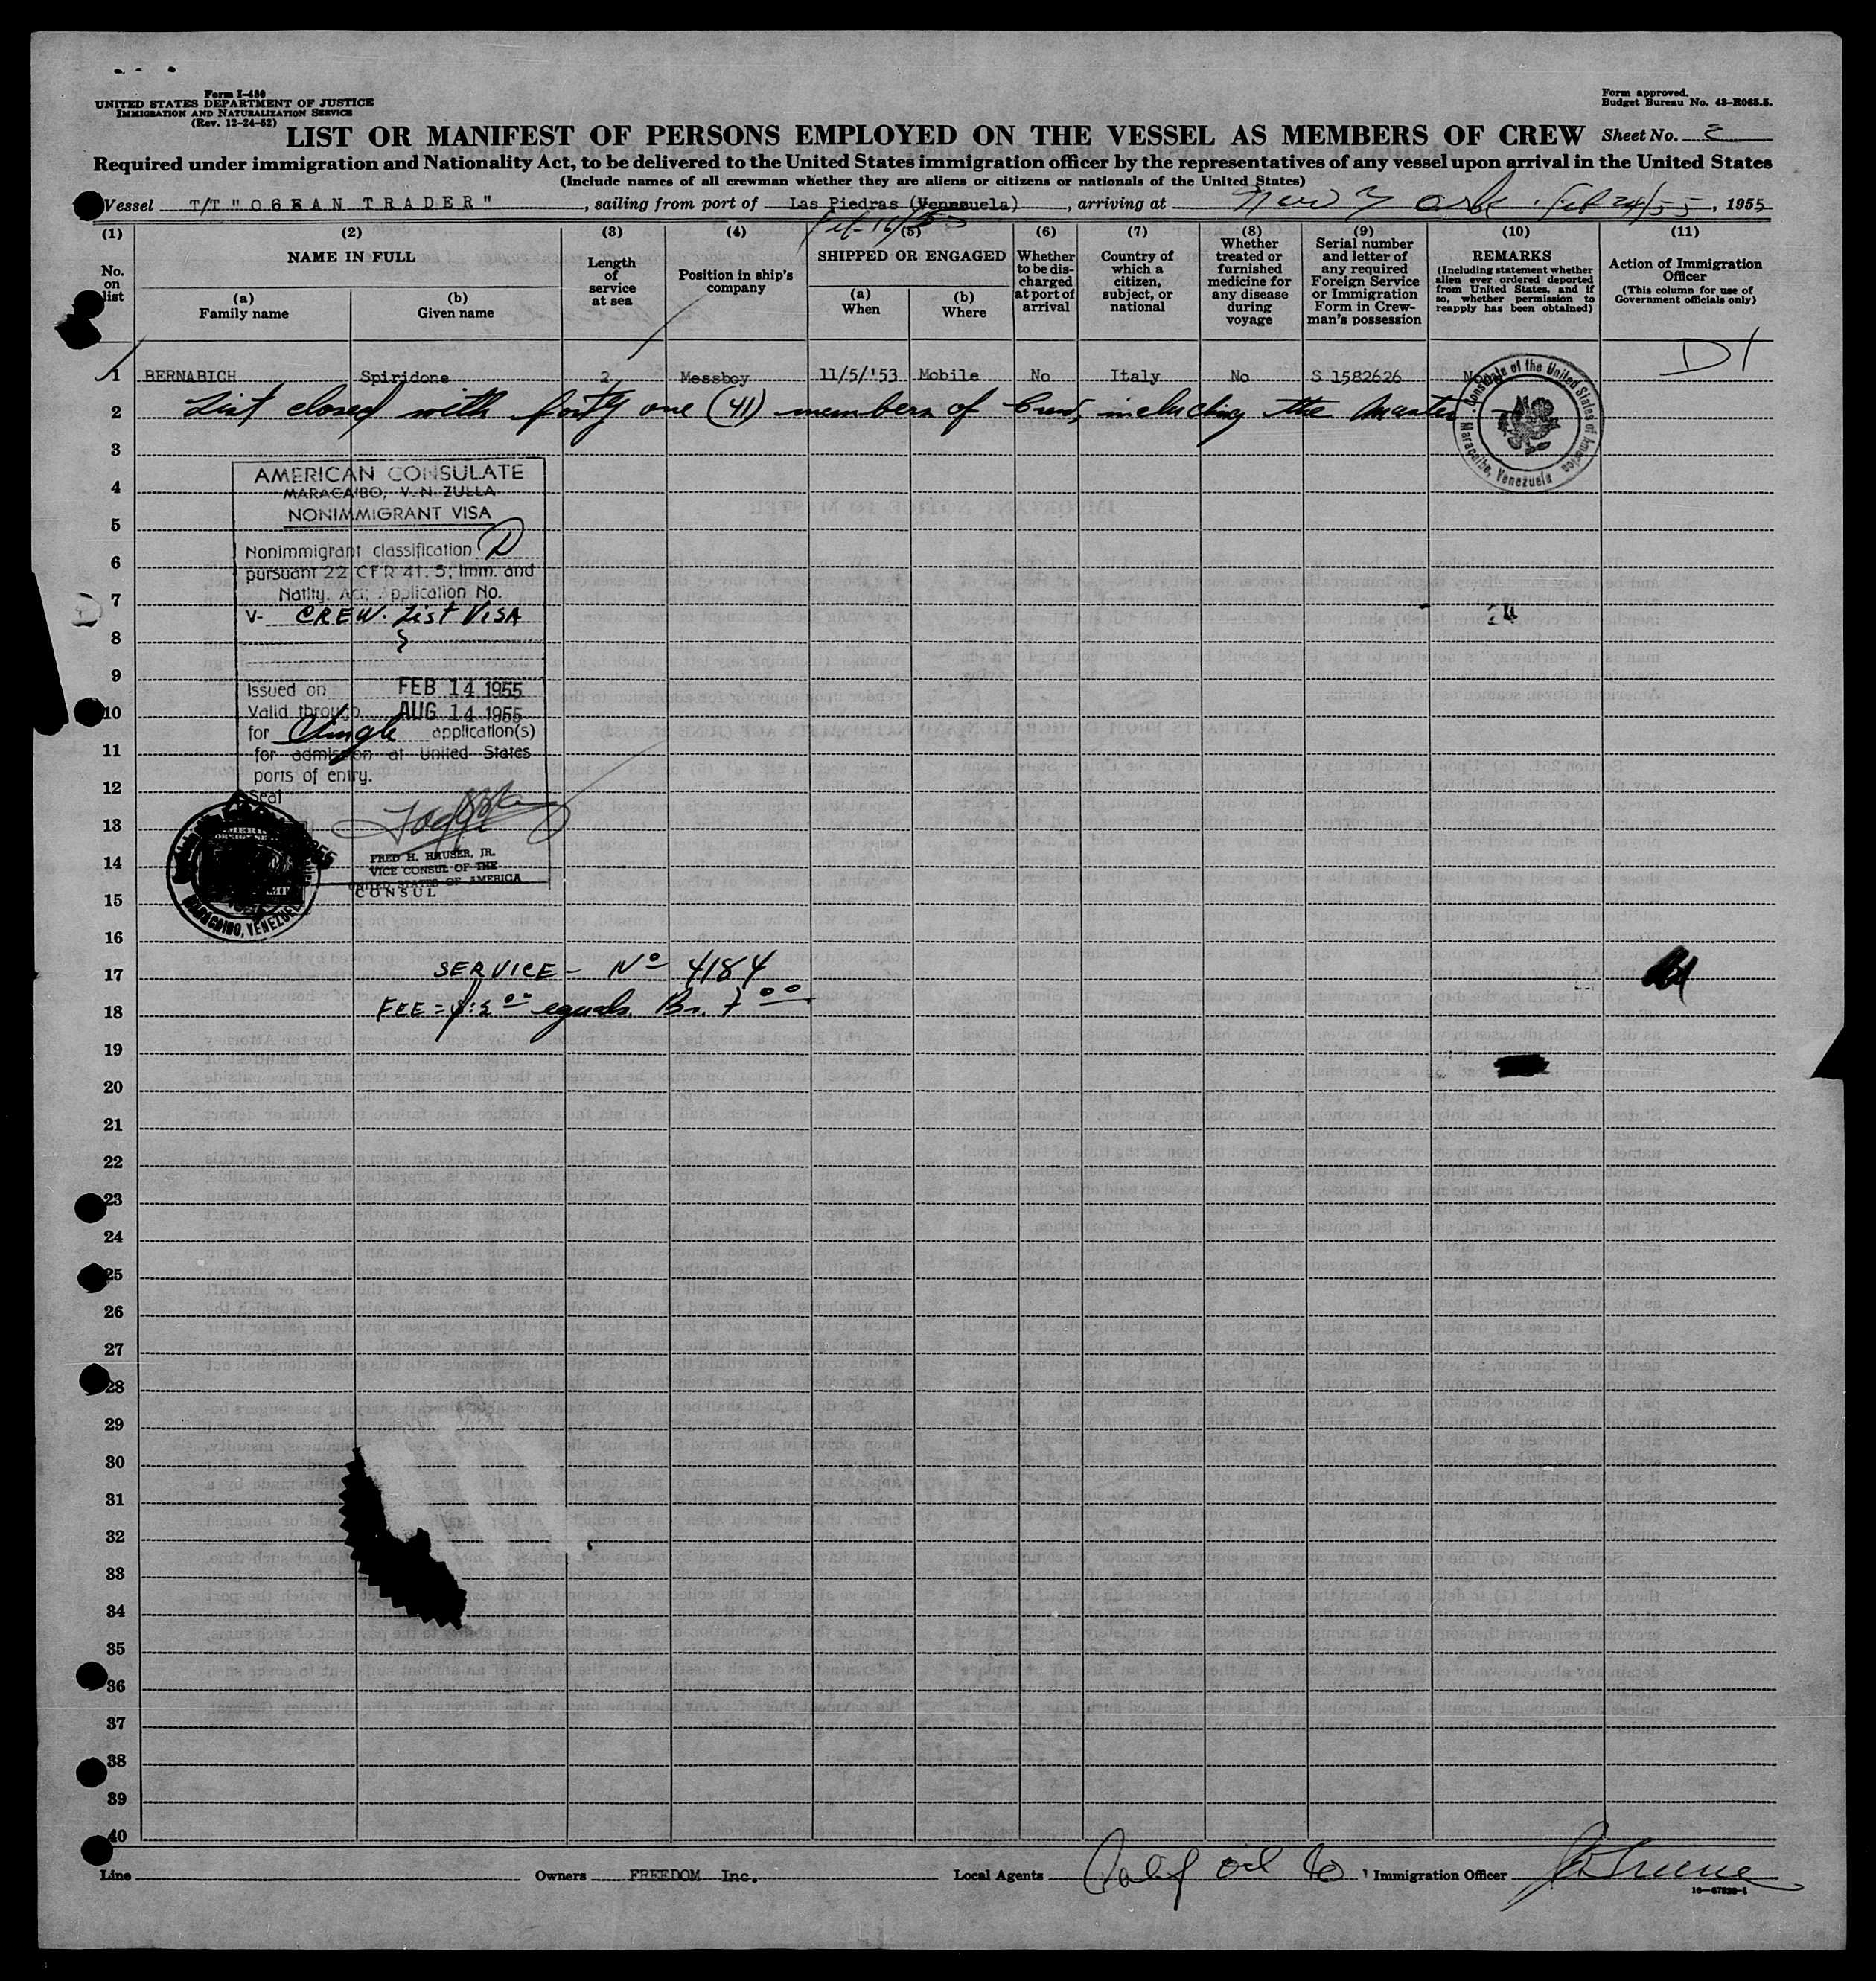 Form I-480
UNITED STATES DEPARTMENT OF JUSTICE
IMMIGRATION AND NATURALIZATION SERVICE
(Rev. 12-24-52)
Form approved.
Budget Bureau No. 43-R065.5.
LIST OR MANIFEST OF PERSONS EMPLOYED ON THE VESSEL AS MEMBERS OF CREW Sheet No. 2
Required under immigration and Nationality Act, to be delivered to the United States immigration officer by the representatives of any vessel upon arrival in the United States
(Include names of all crewman whether they are aliens or citizens or nationals of the United States)
Vessel T/T "OCEAN TRADER", sailing from port of Las Piedras (Venezuela), arriving at New York. Feb 24/55, 1955
Feb-16/55
(1) (2) (3) (4) (5) (6) (7) (8) (9) (10) (11)
No. on list
NAME IN FULL
(a) Family name
(b) Given name
Length of service at sea
Position in ship's company
SHIPPED OR ENGAGED
(a) When
(b) Where
Whether to be discharged at port of arrival
Country of which a citizen, subject, or national
Whether treated or furnished medicine for any disease during voyage
Serial number and letter of any required Foreign Service or Immigration Form in Crewman's possession
REMARKS
(Including statement whether alien ever ordered deported from United States, and if so, whether permission to reapply has been obtained)
Action of Immigration Officer
(This column for use of Government officials only)
D1
1 BERNABICH Spiridone 2 Messboy 11/5/'53 Mobile No Italy No S 1582626
2 List closed with forty one (41) members of Crew, including the Master
Consulate of the United States of America
Maracaibo, Venezuela
3
4
5
6
7
8
9
10
11
12
13
14
15
16
17
18
19
20
21
22
23
24
25
26
27
28
29
30
31
32
33
34
35
36
37
38
39
40
AMERICAN CONSULATE
MARACAIBO, V.N. ZULLA
NONIMMIGRANT VISA
Nonimmigrant classification D
pursuant 22 CFR 41.5; Imm. and
Natlty. Act; Application No.
V- CREW. List VISA
Issued on FEB 14 1955
Valid through AUG 14 1955
for Single application(s)
for admission at United States
ports of entry.
Seal
FRED H. HAUSER, JR.
VICE CONSUL OF THE
UNITED STATES OF AMERICA
CONSUL
MARACAIBO, VENEZUELA
24
SERVICE - Nº 4184
FEE = $:2.00 equals Bs. 7.00
Line
Owners FREEDOM Inc.
Local Agents Calif Oil Co
Immigration Officer
16-67838-1